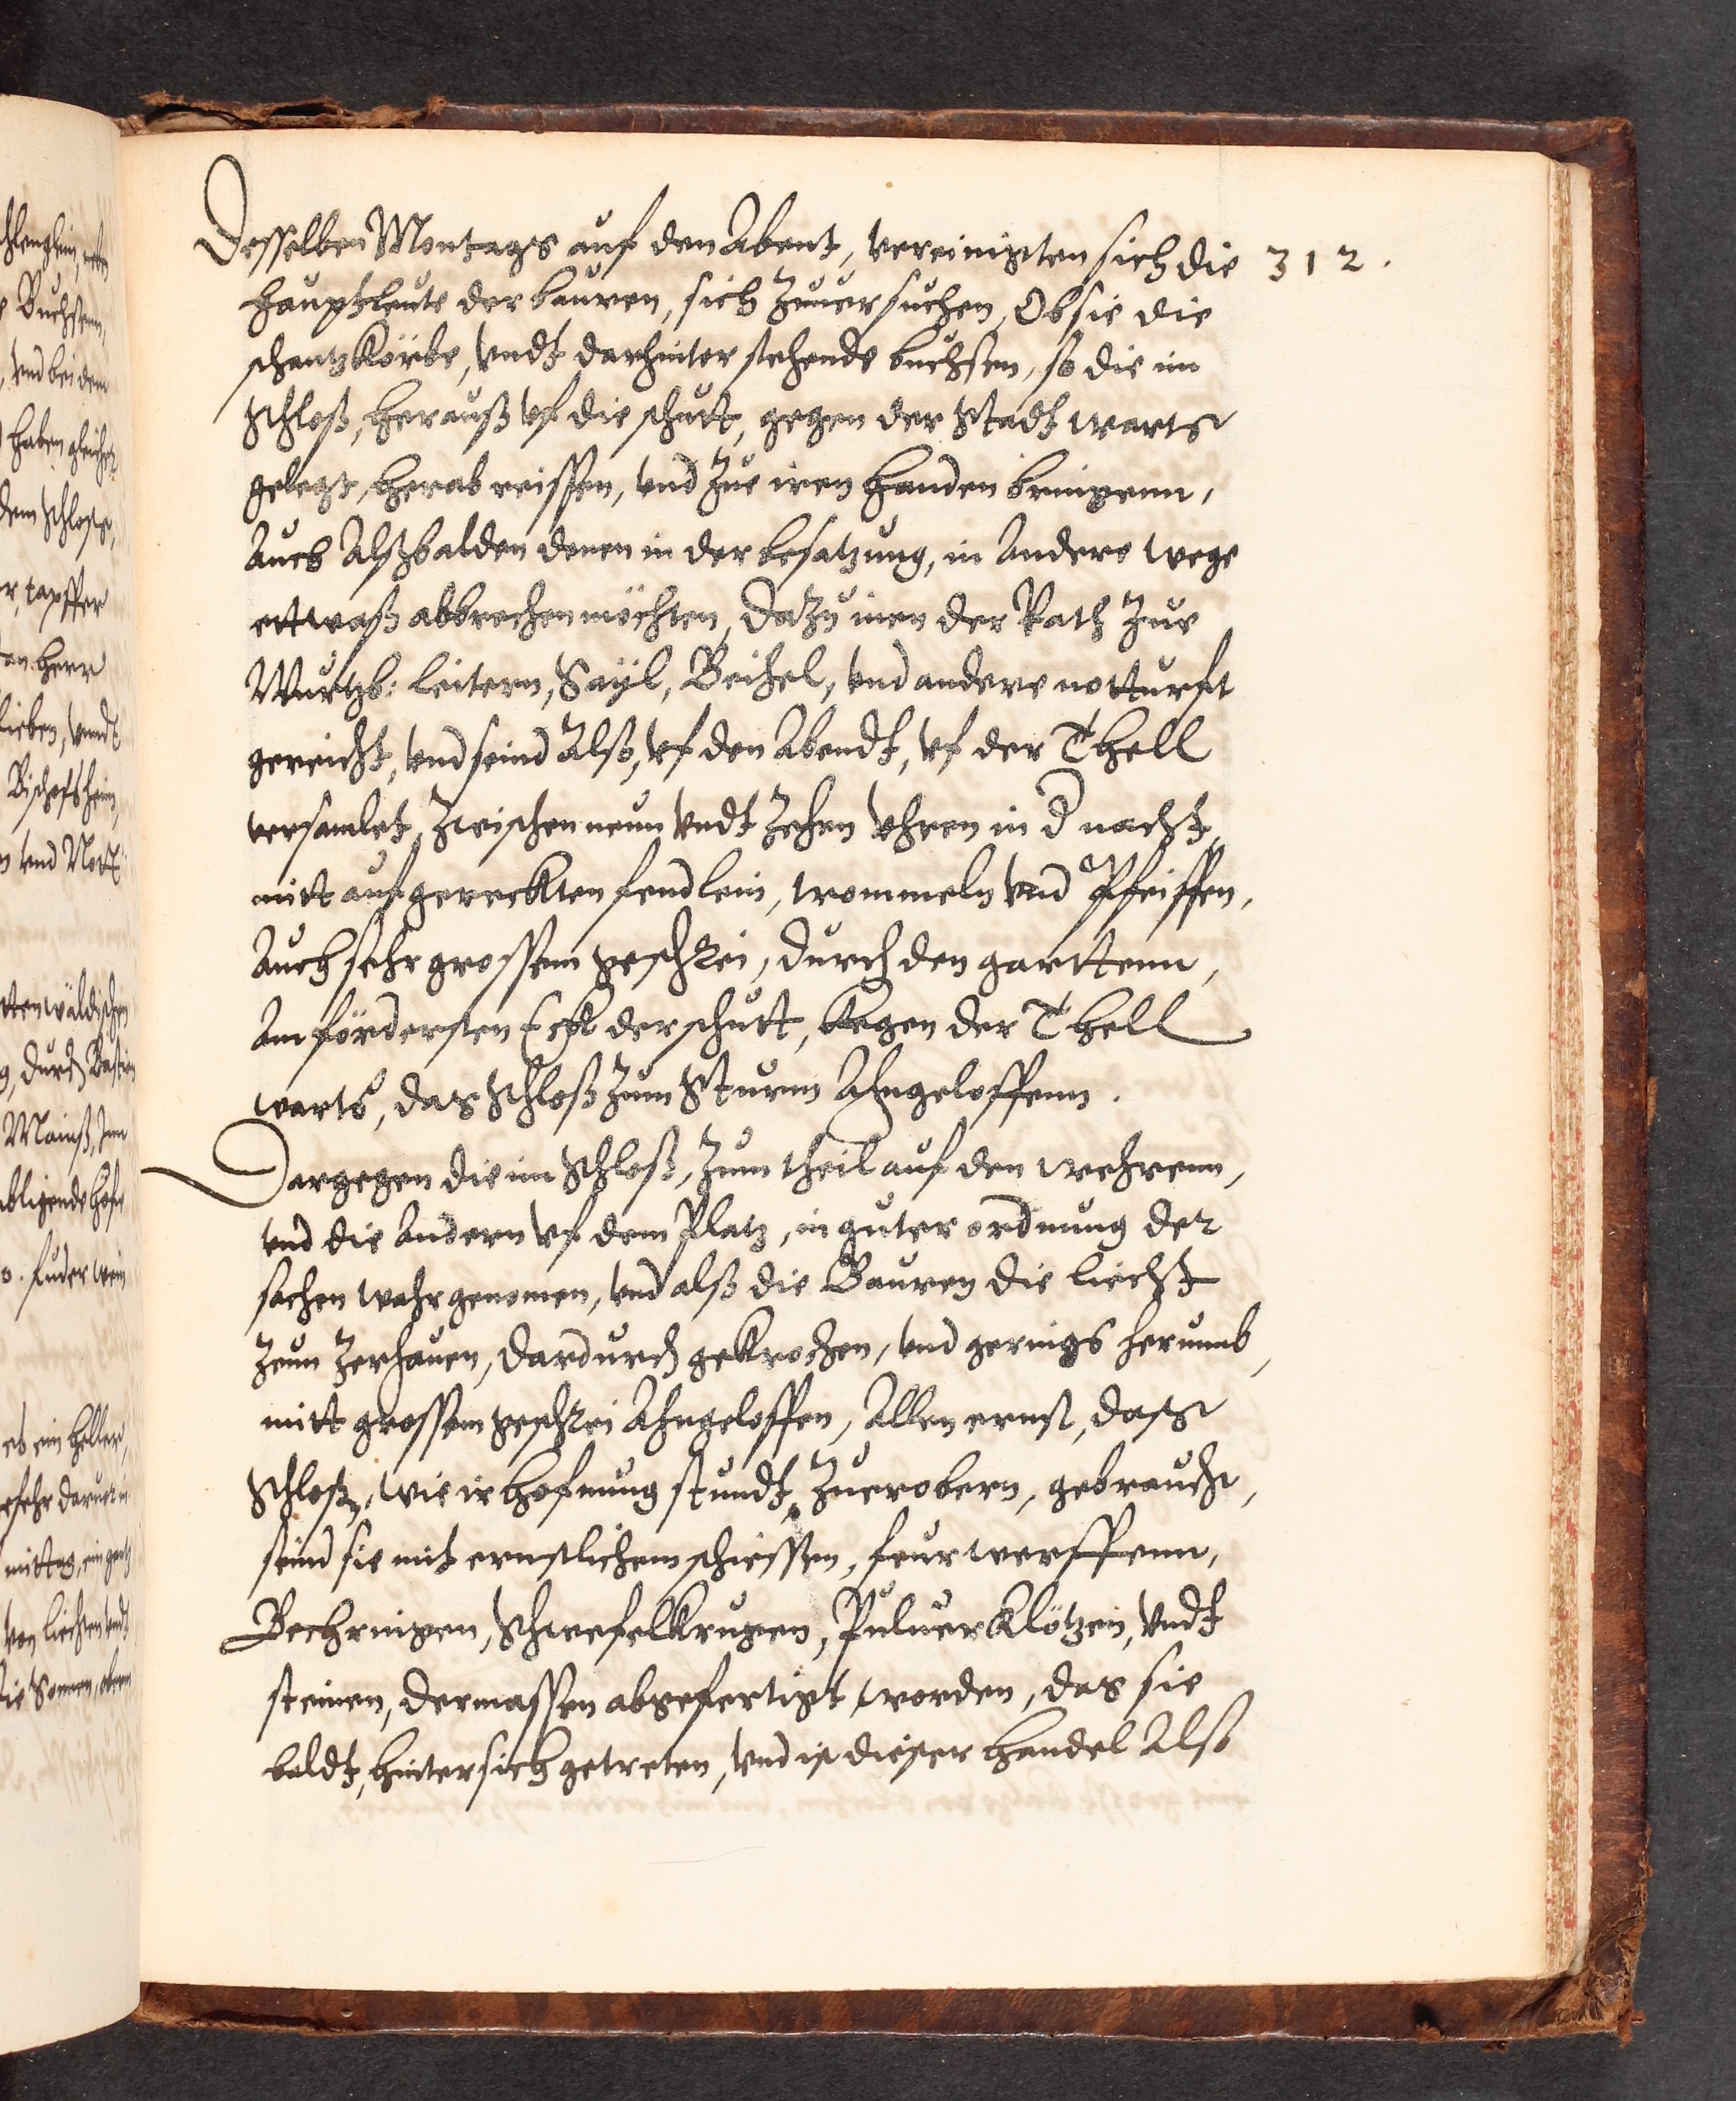 Desselben Montags auf den Abent, vereinigten sich die 312.
hauptleute der bauren, sich zuuersuchen, Ob sie die
schantzkörbe, vndt darhinter stehende buchsen, so die im
Schloß, herauß vf die schutt, gegen der Stadt warts
gelegt, herab reissen, vnd zue iren handen bringenn,
Auch Alßbalden denen in der besatzung, in Andere wege
ettwaß abbrechen möchten, dazu inen der Rath zue
Wurtzb: leitern, Saÿl, Beihel, vnd andere notturft
gereicht, vnd seind Alß, vf den Abendt, vf der Thell
versamlet, zwischen neun vndt zehen vhren in d nacht,
mitt aufgereckten fendlein, trommeln vnd Pfeiffen,
Auch sehr grossem geschrei, durch den garttenn,
Am fördersten Eckh der schutt, kegen der Thell
warts, das Schloß zum Sturm Ahngeloffenn.
Dargegen die im Schloß, zum theil auf den wehrenn,
vnd die Andern vf dem Platz, in guter ordnung der
sachen wahrgenomen, vnd alß die Bauren die liecht
zeun zerhauen, dardurch gekrochen, vnd gerings herumb,
mitt grossem geschrei Ahngeloffen, Allen ernst, dass
Schloß, wie ir hofnung stundt, zuerobern, gebraucht,
seind sie mit ernstlichem schiessen, feurwerffenn,
Bechringen, Schwefelkrugen, Puluerklötzen, vndt
steinen, dermassen abgefertigt worden, das sie
baldt, hintersich getreten, vnd ist dieser handel Alß
Buchsenn,
vnd bei dem
haben
dem Schloss,
tapffer
herr
Bischofsheim,
durch
fuder wein
ein heller,
mittag,
von liechten vndt